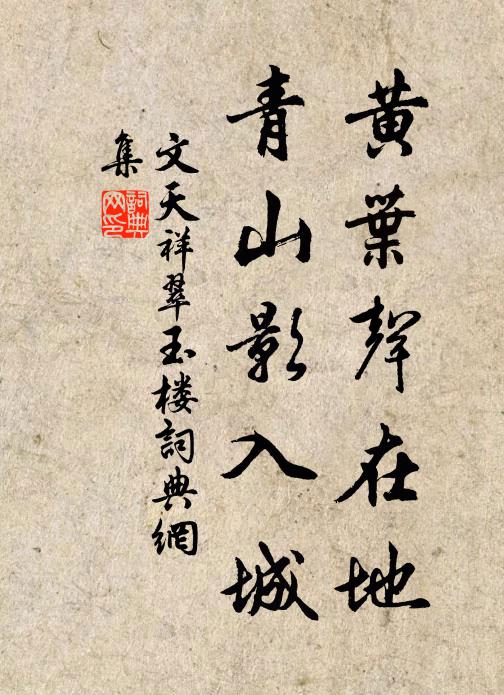 黃葉聲在地
青山影入城
文天祥翠玉楼詞典網
集
詞典
网印